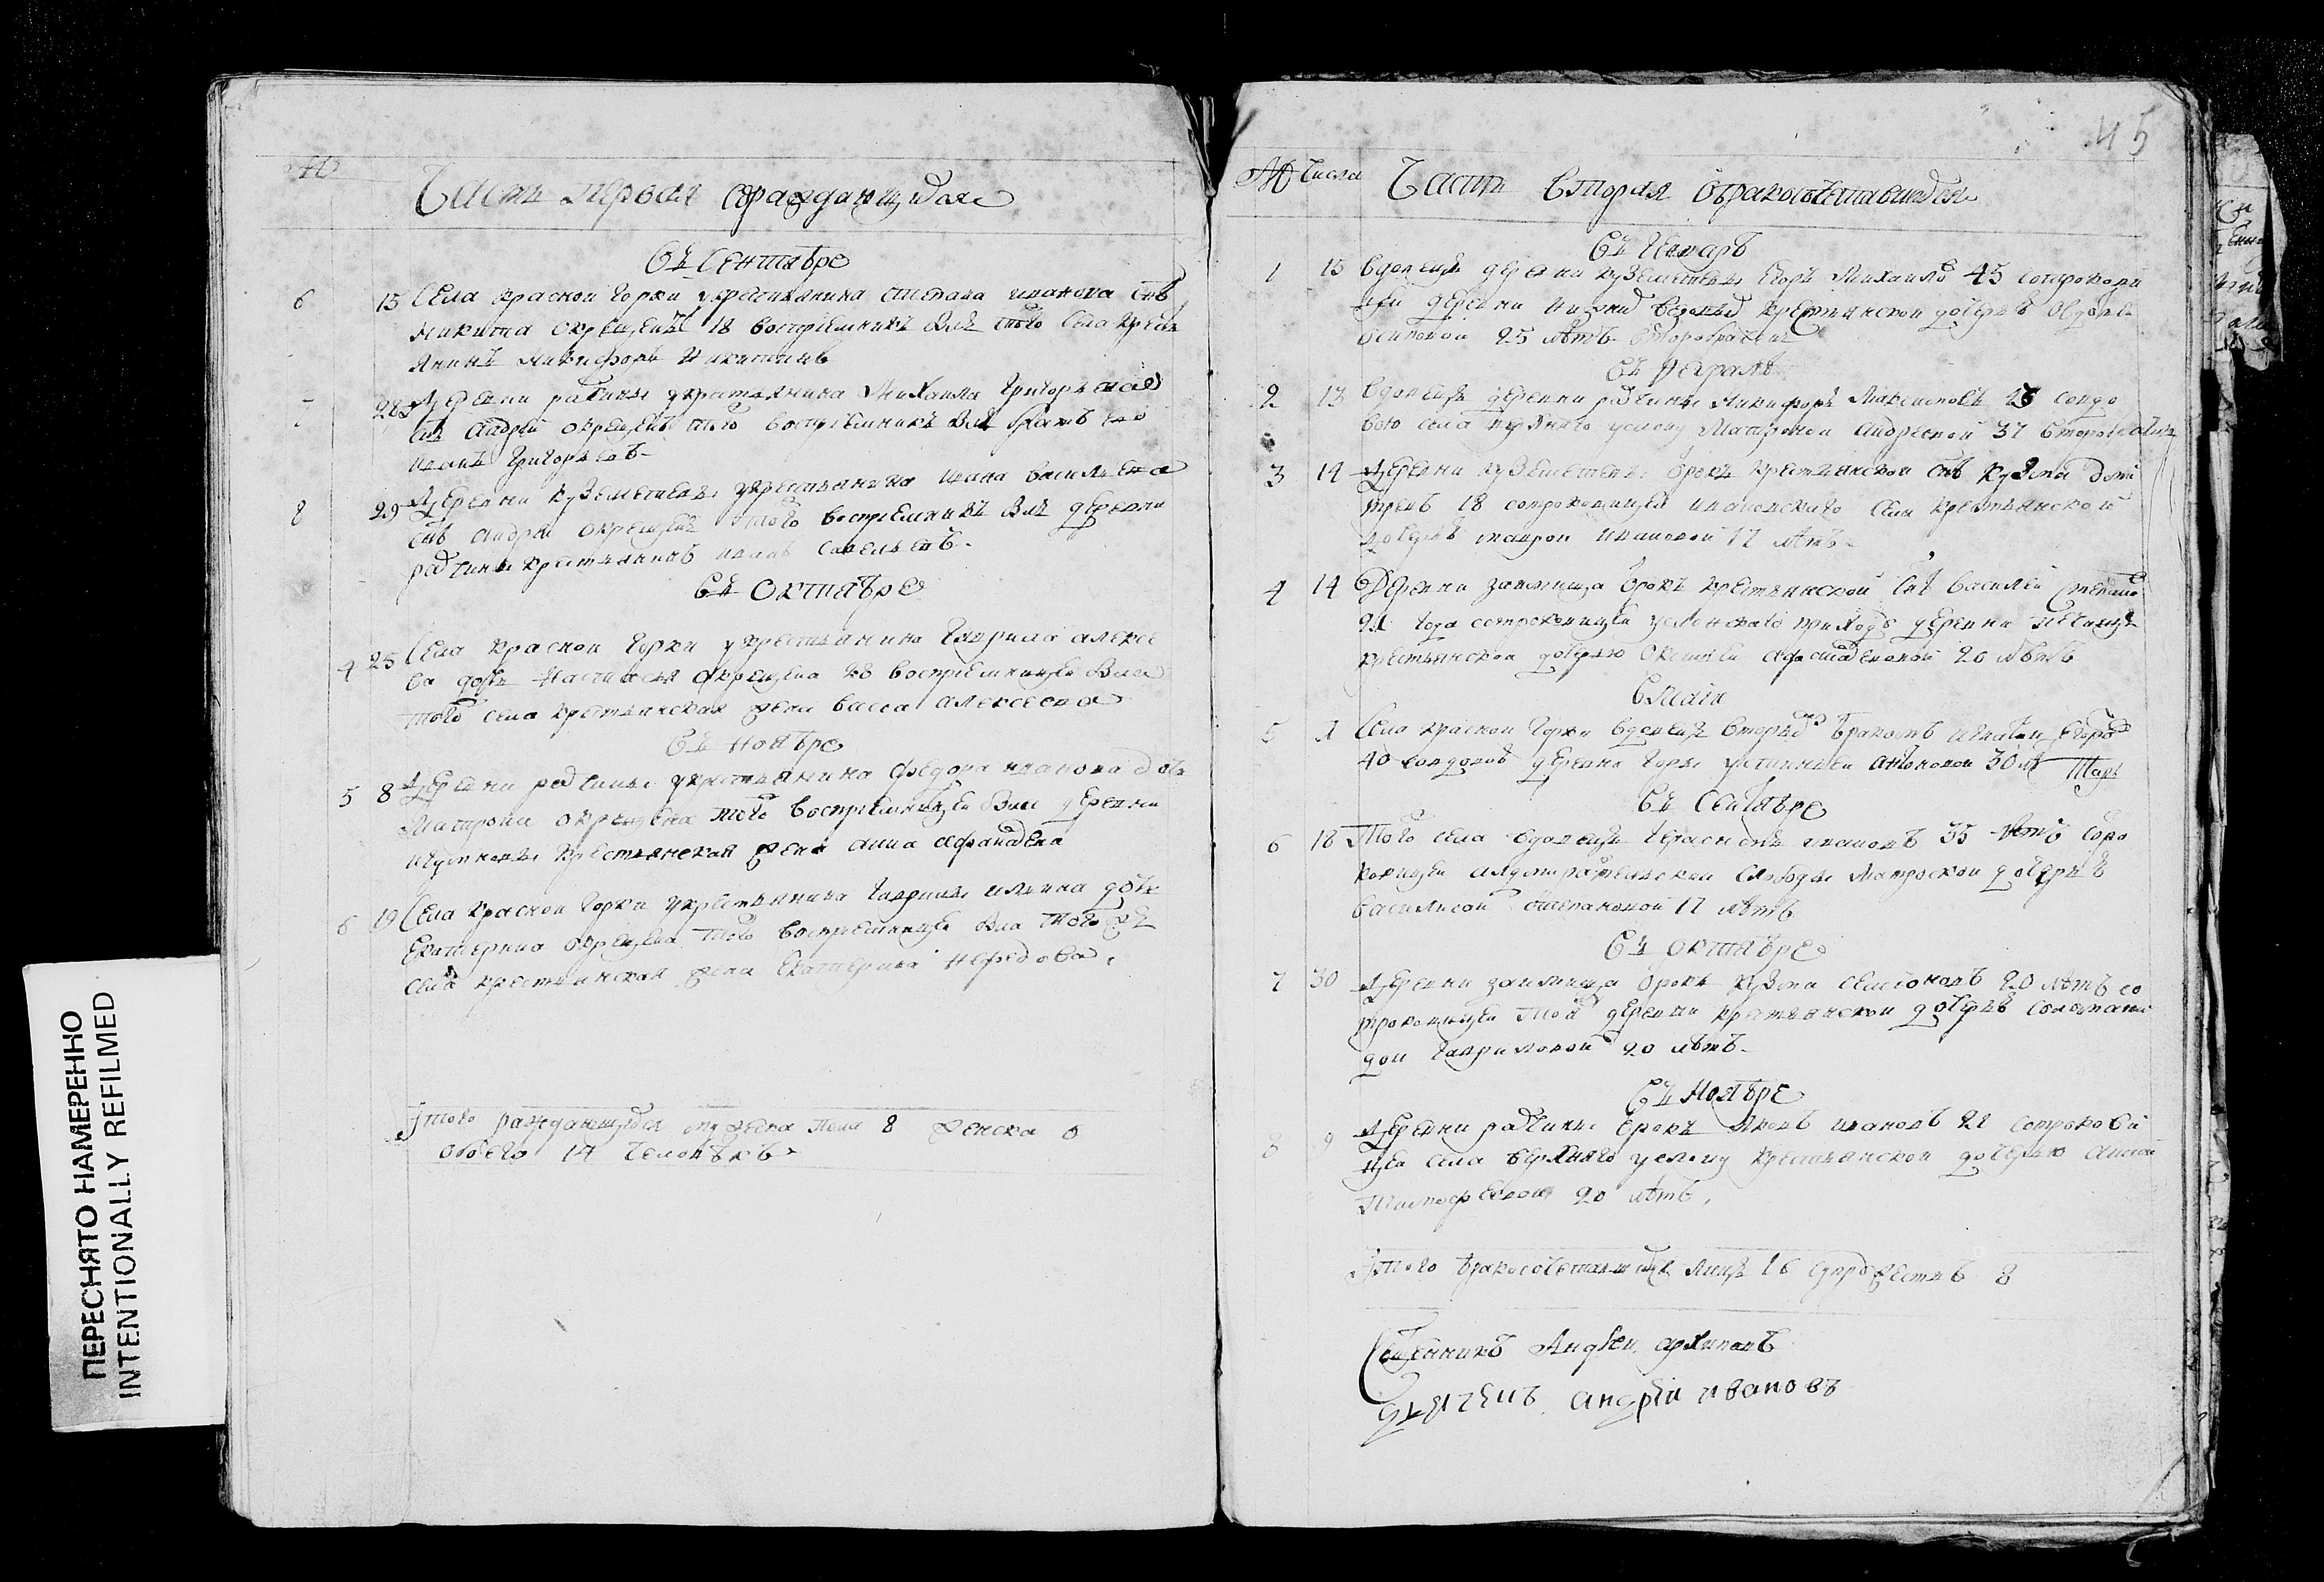 Часть первая ораждающихся
Въ Сентябре
6 15 Села красной горки укрестьянина степана иванова снъ
никита окрещенъ 18 восприемникъ былъ того села крест
янинъ никифоръ никитинъ
7 28 Деревни ратчины укрестьянина михаила григорьева
снъ андрей окрещенъ того восприемникъ былъ братъ его
иванъ григорьевъ
8 29 Деревни куземетевы укрестьянина ивана васильева
снъ андрей окрещенъ того восприемникъ былъ деревни
ратчины крестьянинъ иванъ савельевъ
Въ Октябре
4 25 Села красной горки укрестьянина гаврила алексе
ва дочь настасья окрещена 28 восприемница была
того села крестьянская жена васса алексеева
Въ ноябре
5 8 Деревни ратчины укрестьянина федора иванова дочь
матрона окрещена того восприемница была деревни
крестьянская жена анна афанасева
6 19 Села красной горки укрестьянина гаврилы ильина дочь
екатерина окрещена того восприемница была того ж
села крестьянская жена екатерина нефедова
Итого раждающихся мужеска пола 8 женска 6
обоего 14 человекъ
45
№ Числа Часть вторая обракосочетавшихся
Въ Генваре
1 15 вдовецъ деревни куземетевы егоръ михайло 45 сотрокови
цей деревни крестьянской дочерью авдоть
осиповой 25 летъ второбрачнъ
Въ феврале
2 13 вдовецъ деревни ратчины никифоръ максимовъ совдо
вою села услону матроной андреевой 37
3 14 Деревни куземетевы отрокъ крестьянской снъ кузма дми
треевъ 18 сотроковицей ивановскаго села крестьянской
дочерью маврой ивановой 17 летъ
4 14 Деревни займища отрокъ крестьянской снъ василей степано
21 года сотроковицей услонскаго приходу деревни печищъ
крестьянской дочерью афанасевой 20 летъ
Вмаия
5 1 Села красной горки вдовецъ вторымъ бракомъ егоро
40 совдовой деревни горы устиньей антоновой 30 л
Въ Сентябре
6 18 Того села вдовецъ герасимъ ивановъ 35 летъ сотро
ковицей адмиралтейской слободы матроской дочерью
василисой степановой 17 летъ
Въ октябре
7 30 Деревни займища отрокъ кузма семионовъ 20 летъ со
троковицей той деревни крестьянской дочерью соломани
дой гавриловой 20 летъ
Въ Ноябре
8 9 Деревни ратчины отрокъ яковъ ивановъ 21 сотрокови
цей села верхняго услону крестьянской дочерью анной
тимофеевой 20 летъ
Итого бракосочетавшихся лицъ 16 супружествъ 8
Священникъ Андрей архиповъ
дьячекъ андрей ивановъ
ПЕРЕСНЯТО НАМЕРЕННО
INTENTIONALLY REFILMED